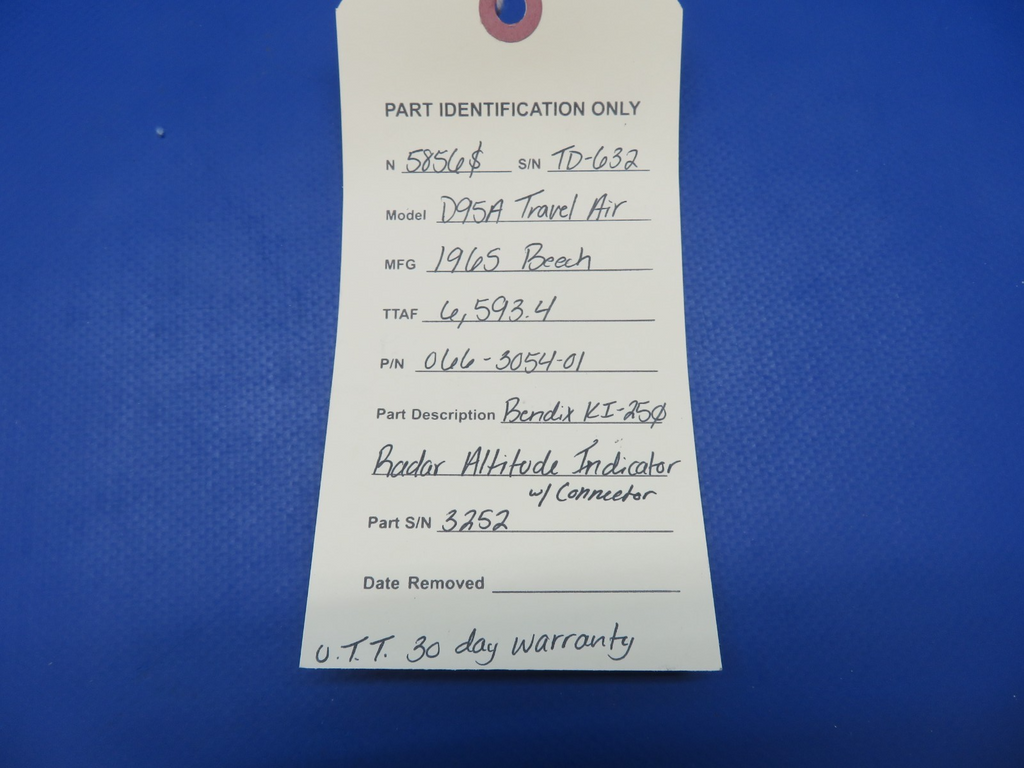 PART IDENTIFICATION ONLY
N 5856S S/N TD-632
Model D95A Travel Air
MFG 1965 Beech
TTAF 6,593.4
P/N 066-3054-01
Part Description Bendix KI-25Ø
Radar Altitude Indicator
w/ Connector
Part S/N 3252
Date Removed
U.T.T. 30 day warranty